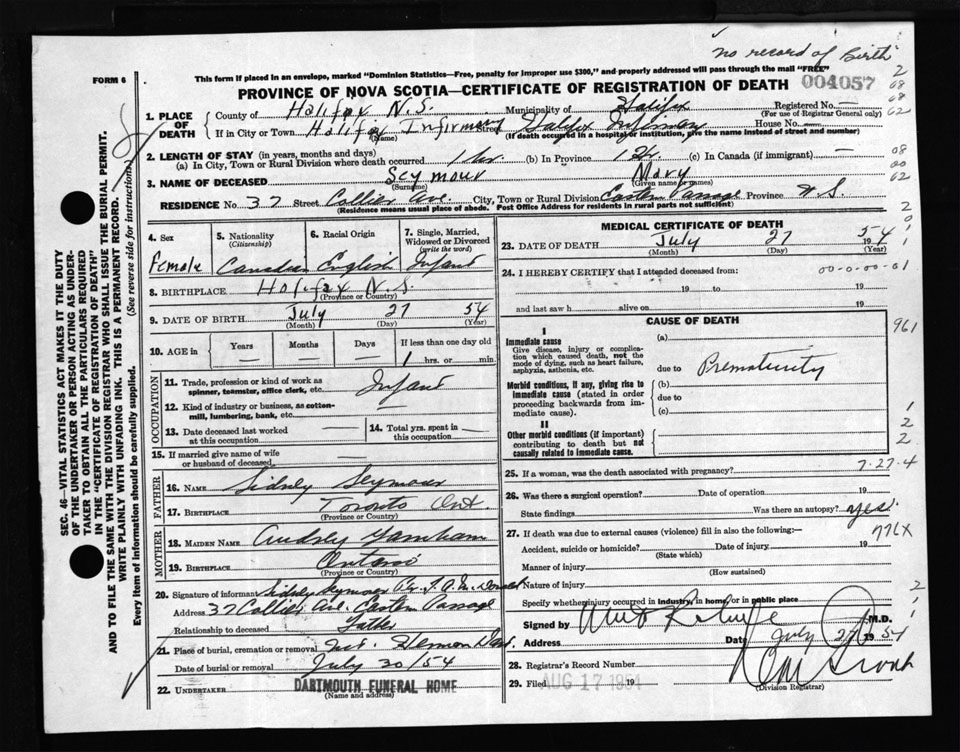 no record of birth
FORM 6
This form if placed in an envelope, marked "Dominion Statistics—Free, penalty for improper use $300," and properly addressed will pass through the mail "FREE"
004057
PROVINCE OF NOVA SCOTIA—CERTIFICATE OF REGISTRATION OF DEATH
1. PLACE OF DEATH
County of Halifax N.S. Municipality of Halifax Registered No. —
(For use of Registrar General only)
If in City or Town Halifax Infirmary Street Halifax Infirmary House No. —
(Name) (If death occurred in a hospital or institution, give the name instead of street and number)
2. LENGTH OF STAY (in years, months and days)
(a) In City, Town or Rural Division where death occurred 1 hr. (b) In Province 1 hr. (c) In Canada (if immigrant) —
3. NAME OF DECEASED Seymour Mary
(Surname) (Given name or names)
RESIDENCE No. 37 Street Collier Ave City, Town or Rural Division Eastern Passage Province N.S.
(Residence means usual place of abode. Post Office Address for residents in rural parts not sufficient)
4. Sex
Female
5. Nationality
(Citizenship)
Canadian
6. Racial Origin
English
7. Single, Married, Widowed or Divorced
(write the word)
Infant
8. BIRTHPLACE Halifax N.S.
(Province or Country)
9. DATE OF BIRTH July 27 54
(Month) (Day) (Year)
10. AGE in
Years Months Days If less than one day old
— — — 1 hrs. or min.
OCCUPATION
11. Trade, profession or kind of work as spinner, teamster, office clerk, etc. Infant
12. Kind of industry or business, as cotton-mill, lumbering, bank, etc. —
13. Date deceased last worked at this occupation —
14. Total yrs. spent in this occupation —
15. If married give name of wife or husband of deceased —
FATHER
16. NAME Sidney Seymour
17. BIRTHPLACE Toronto Ont.
(Province or Country)
MOTHER
18. MAIDEN NAME Audrey
19. BIRTHPLACE Ontario
(Province or Country)
20. Signature of informant Sidney Seymour
Address 37 Collier Ave. Eastern Passage
Relationship to deceased Father
21. Place of burial, cremation or removal Mt. Hermon Dart.
Date of burial or removal July 30/54
22. UNDERTAKER DARTMOUTH FUNERAL HOME
(Name and address)
MEDICAL CERTIFICATE OF DEATH
23. DATE OF DEATH July 27 1954
(Month) (Day) (Year)
24. I HEREBY CERTIFY that I attended deceased from: 00-0-00-01
19 to 19
and last saw h alive on 19
CAUSE OF DEATH
I
Immediate cause
Give disease, injury or complication which caused death, not the mode of dying, such as heart failure, asphyxia, asthenia, etc.
(a)
due to Prematurity
Morbid conditions, if any, giving rise to immediate cause (stated in order proceeding backwards from immediate cause).
(b)
due to
(c)
II
Other morbid conditions (if important) contributing to death but not causally related to immediate cause.
961
25. If a woman, was the death associated with pregnancy?
7-27-4
26. Was there a surgical operation? Date of operation 19
State findings Was there an autopsy? yes.
27. If death was due to external causes (violence) fill in also the following—
776X
Accident, suicide or homicide? Date of injury 19
(State which)
Manner of injury
(How sustained)
Nature of injury
Specify whether injury occurred in industry, in home, or in public place
Signed by M.D.
Address Date July 27 1954
28. Registrar's Record Number
29. Filed AUG 17 1954 19
(Division Registrar)
SEC. 46—VITAL STATISTICS ACT MAKES IT THE DUTY
OF THE UNDERTAKER OR PERSON ACTING AS UNDER-
TAKER TO OBTAIN ALL THE PARTICULARS REQUIRED
IN THE "CERTIFICATE OF REGISTRATION OF DEATH"
AND TO FILE THE SAME WITH THE DIVISION REGISTRAR WHO SHALL ISSUE THE BURIAL PERMIT.
WRITE PLAINLY WITH UNFADING INK. THIS IS A PERMANENT RECORD.
Every item of information should be carefully supplied. (See reverse side for instructions.)